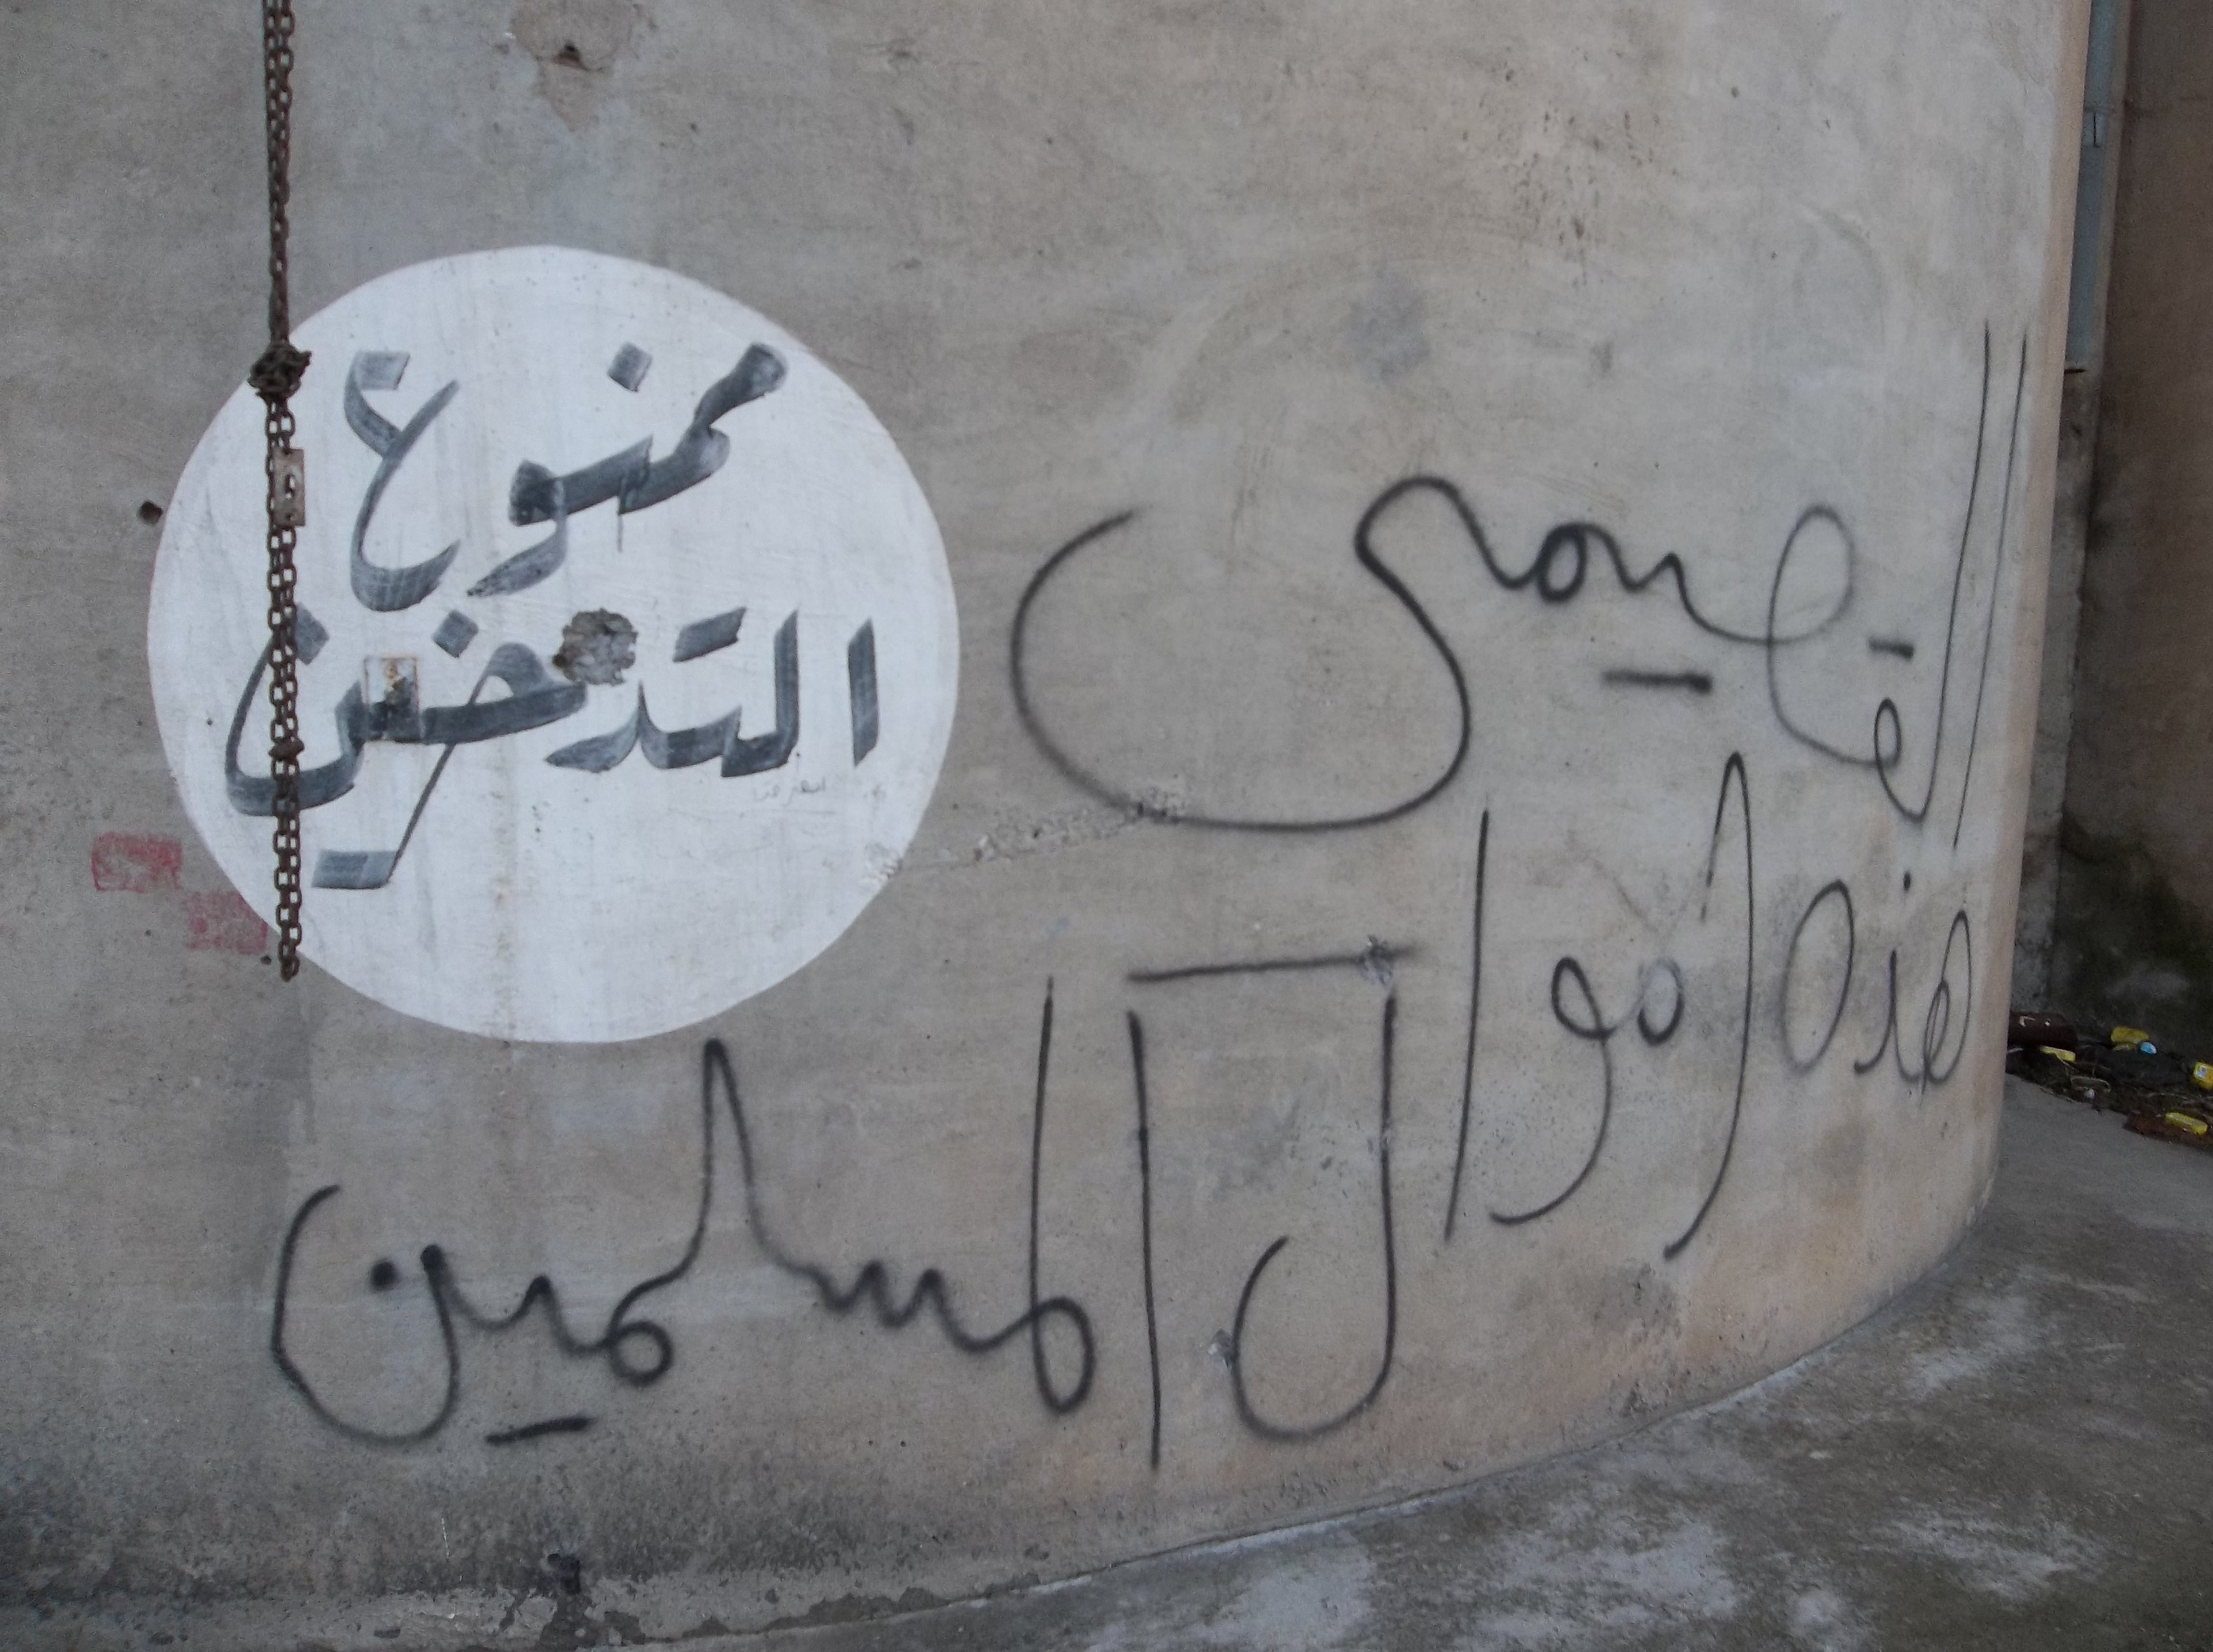 ممنوع
التدخين
هذه اموال المسلمين